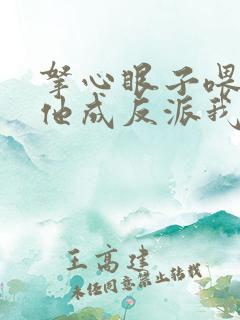 拏心眼子喂
他成反派我
王高建
未经同意禁止转载